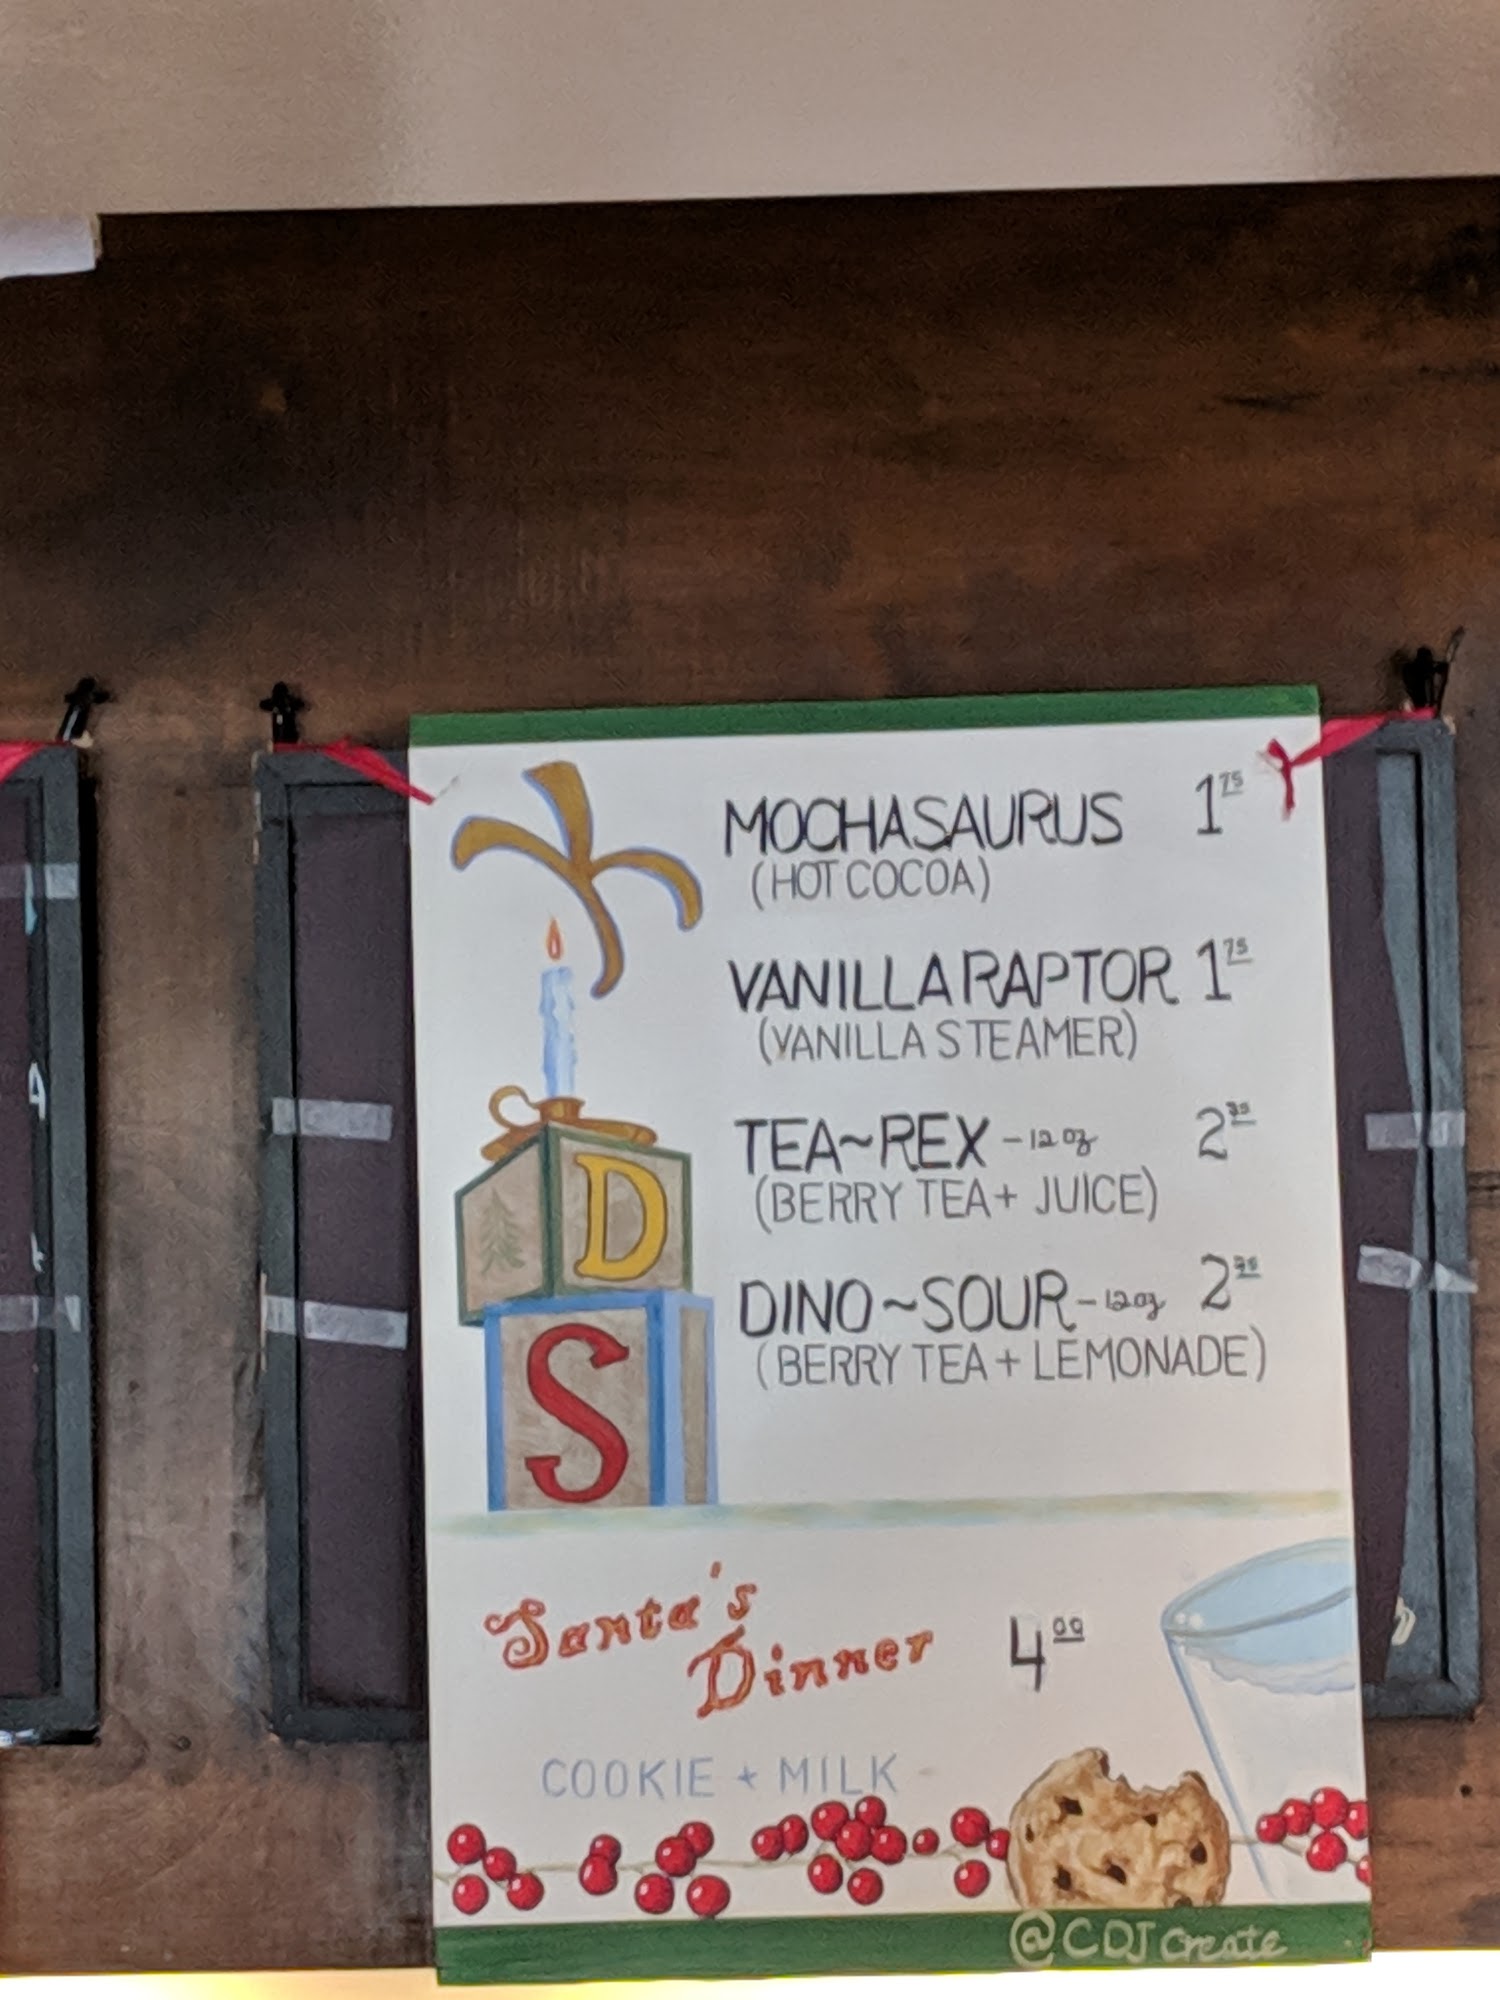 K
D
S
MOCHASAURUS 1 75
(HOT COCOA)
VANILLA RAPTOR 1 75
(VANILLA STEAMER)
TEA~REX - 12 oz 2
(BERRY TEA + JUICE)
DINO~SOUR - 12 oz 2
(BERRY TEA + LEMONADE)
Santa's
Dinner 4 00
COOKIE + MILK
@CDJ Create